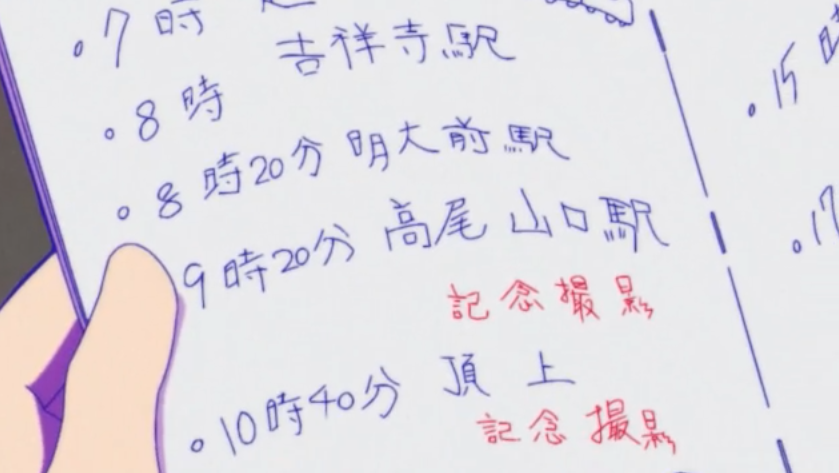 ・7時 起
・8時 吉祥寺駅
・8時20分 明大前駅
9時20分 高尾山口駅
記念撮影
・10時40分 頂上
記念撮影
・15時
・17